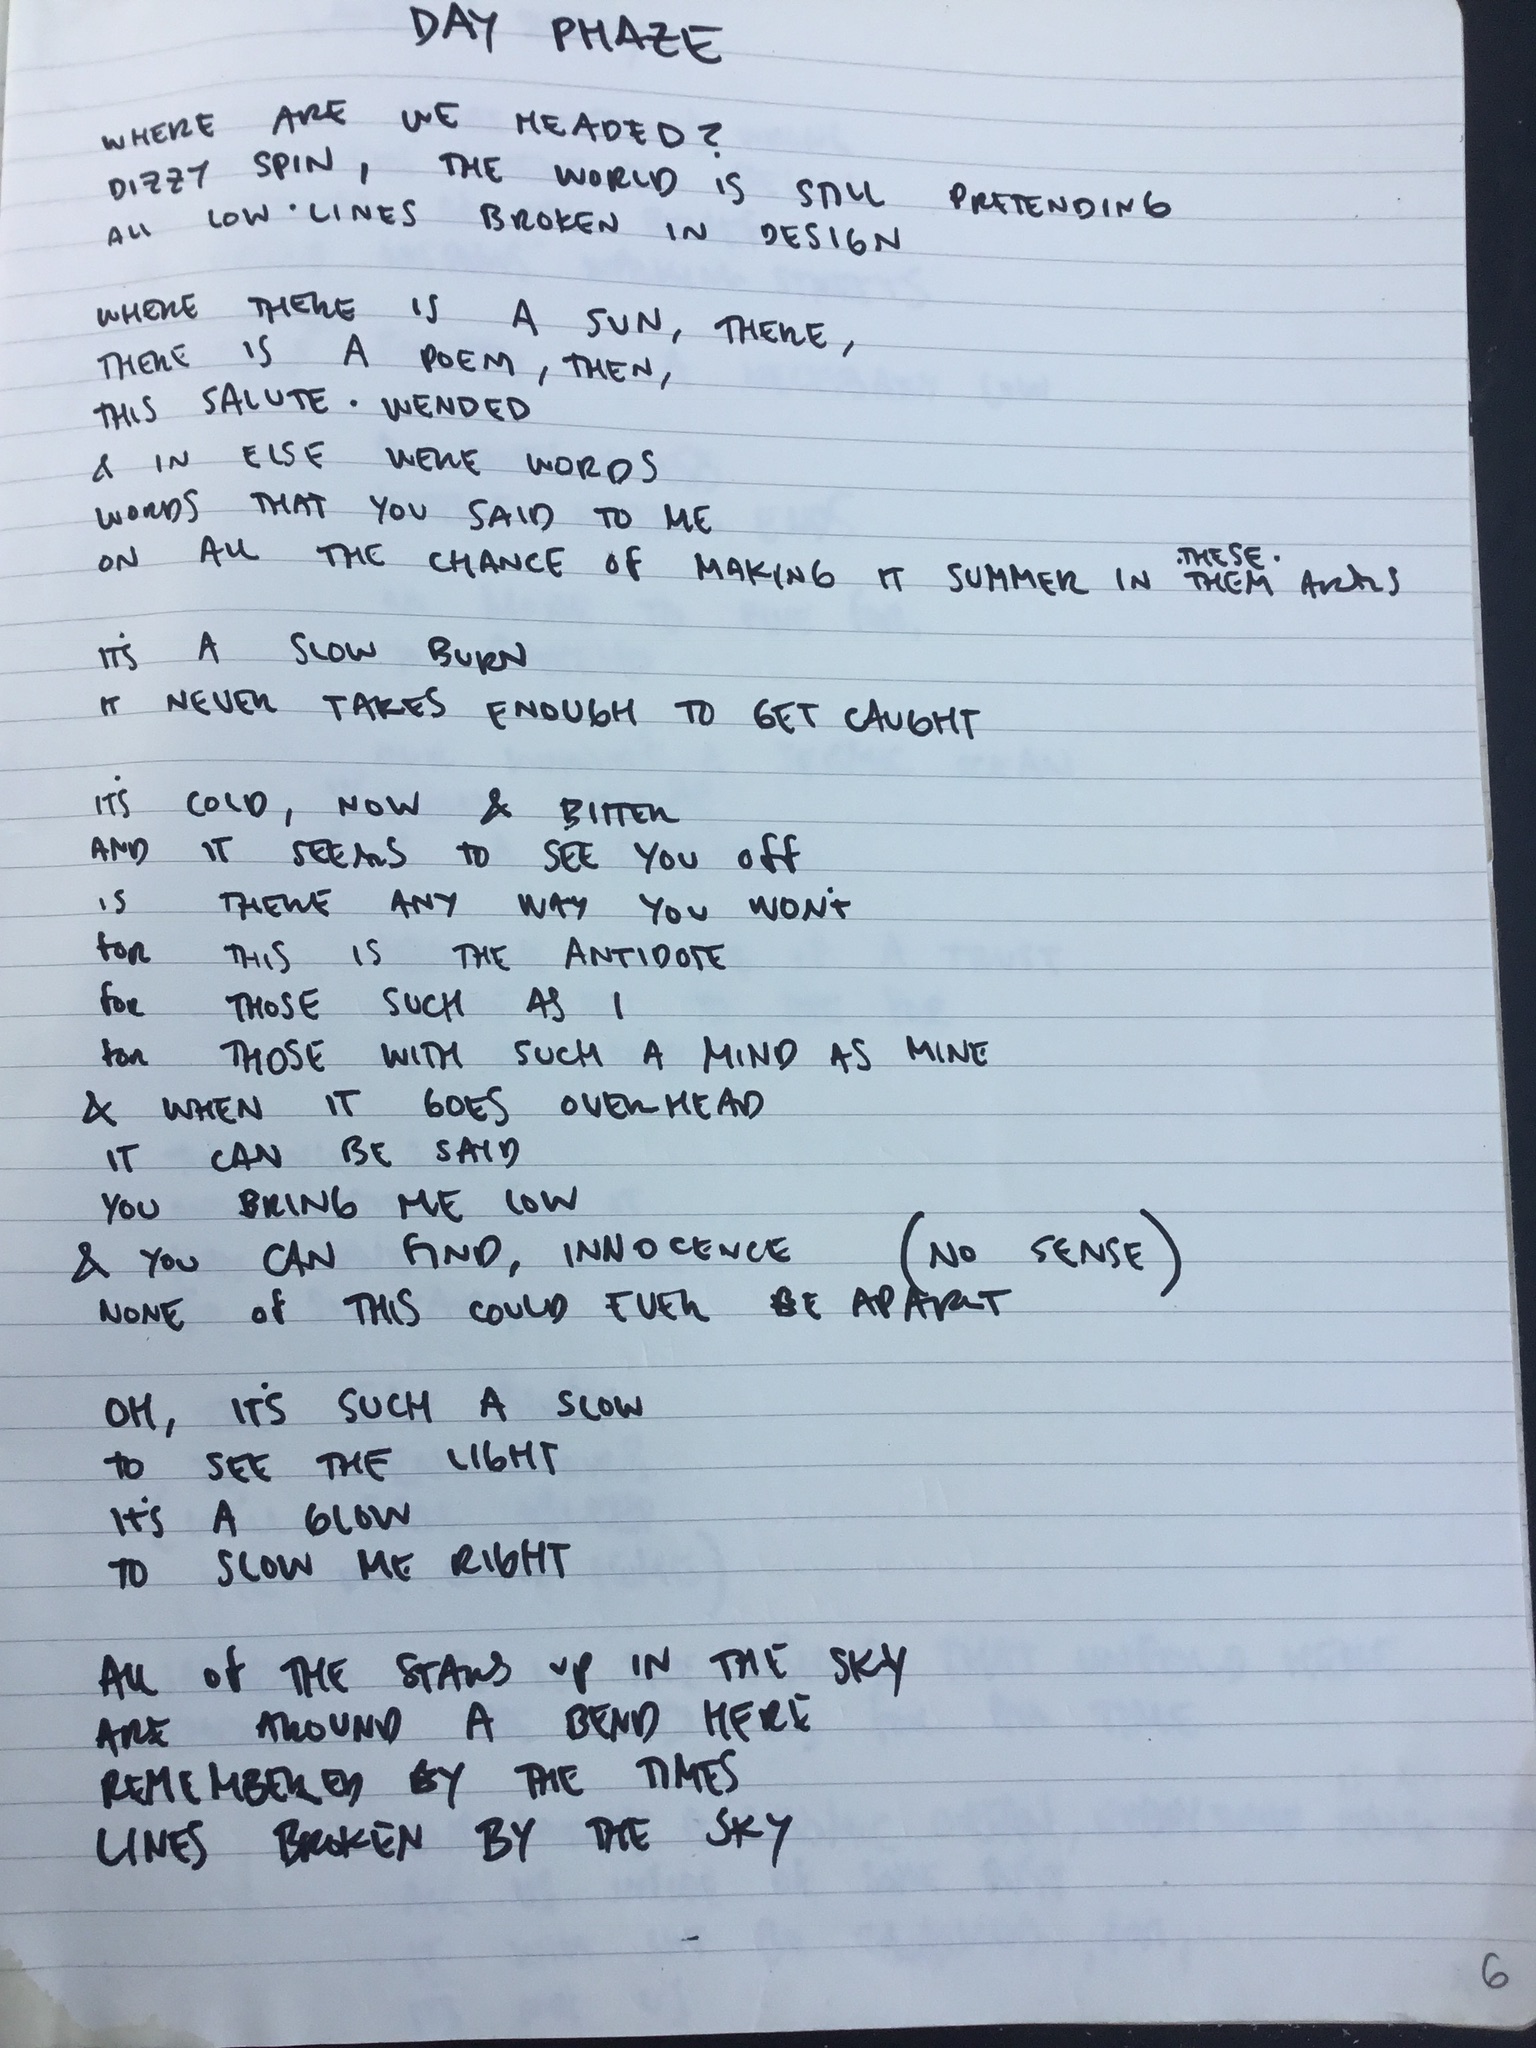 DAY PHAZE
WHERE ARE WE HEADED?
DIZZY SPIN, THE WORLD IS STILL PRETENDING
ALL LOW·LINES BROKEN IN DESIGN
WHERE THERE IS A SUN, THERE,
THERE IS A POEM, THEN,
THIS SALUTE · WENDED
& IN ELSE WERE WORDS
WORDS THAT YOU SAID TO ME
·THESE·
ON ALL THE CHANCE OF MAKING IT SUMMER IN THEM ARMS
IT'S A SLOW BURN
IT NEVER TAKES ENOUGH TO GET CAUGHT
IT'S COLD, NOW & BITTER
AND IT SEEMS TO SEE YOU OFF
IS THERE ANY WAY YOU WON'T
FOR THIS IS THE ANTIDOTE
FOR THOSE SUCH AS I
FOR THOSE WITH SUCH A MIND AS MINE
& WHEN IT GOES OVERHEAD
IT CAN BE SAID
YOU BRING ME LOW
& YOU CAN FIND, INNOCENCE (NO SENSE)
NONE OF THIS COULD EVER BE APART
OH, IT'S SUCH A SLOW
TO SEE THE LIGHT
IT'S A GLOW
TO SLOW ME RIGHT
ALL OF THE STARS UP IN THE SKY
ARE AROUND A BEND HERE
REMEMBERED BY THE TIMES
LINES BROKEN BY THE SKY
6